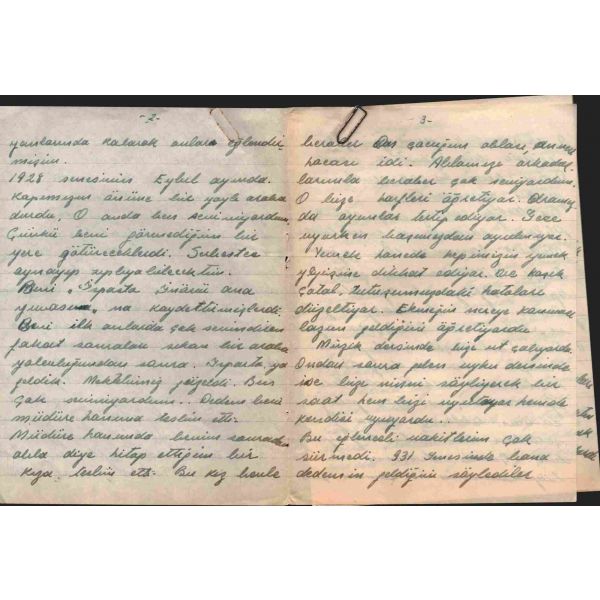 -2-
yanlarında kalarak onları eğlendir
mişim.
1928 senesinin Eylül ayında.
Kapımızın önüne bir yaylı araba
durdu. O anda ben seviniyordum
Çünkü beni görmediğim bir
yere götüreceklerdi. Serbestce
oynayıp zıplıyabilecektim.
Beni "Isparta İnönü ana
yuvasına" kaydettirmişlerdi.
Beni ilk anlarda çok sevindiren
fakat sonraları sıkan bir araba
yolculuğundan sonra. Isparta ya
geldik. Mektebimiz güzeldi. Ben
çok seviniyordum. Dedem beni
müdüre hanıma teslim etti.
Müdüre hanımda benim sonrada
abla diye hitap ettiğim bir
kıza teslim etti. Bu kız benle
3-
beraber ablası
hocası idi. Ablamızı arkadaş
larımla beraber çok seviyordum.
O bize harfleri öğretiyor.
da oyunlar tertip ediyor. Gece
uyurken başımızdan ayrılmıyor.
Yemek hanede hepimizin yemek
yeyişine dikkat ediyor. Ve kaşık
çatal, tutuşumuzdaki hataları
düzeltiyor. Ekmeğin nereye konması
lazım geldiğini öğretiyordu
Müzik dersinde bize ut çalıyordu.
Ondan sonra gelen uyku dersinde
ise bize ninni söyliyerek bir
saat hem bizi uyutuyor hemde
kendisi uyuyordu..
Bu eğlenceli vakitlerim çok
sürmedi. 931 senesinde bana
dedemin geldiğini söylediler